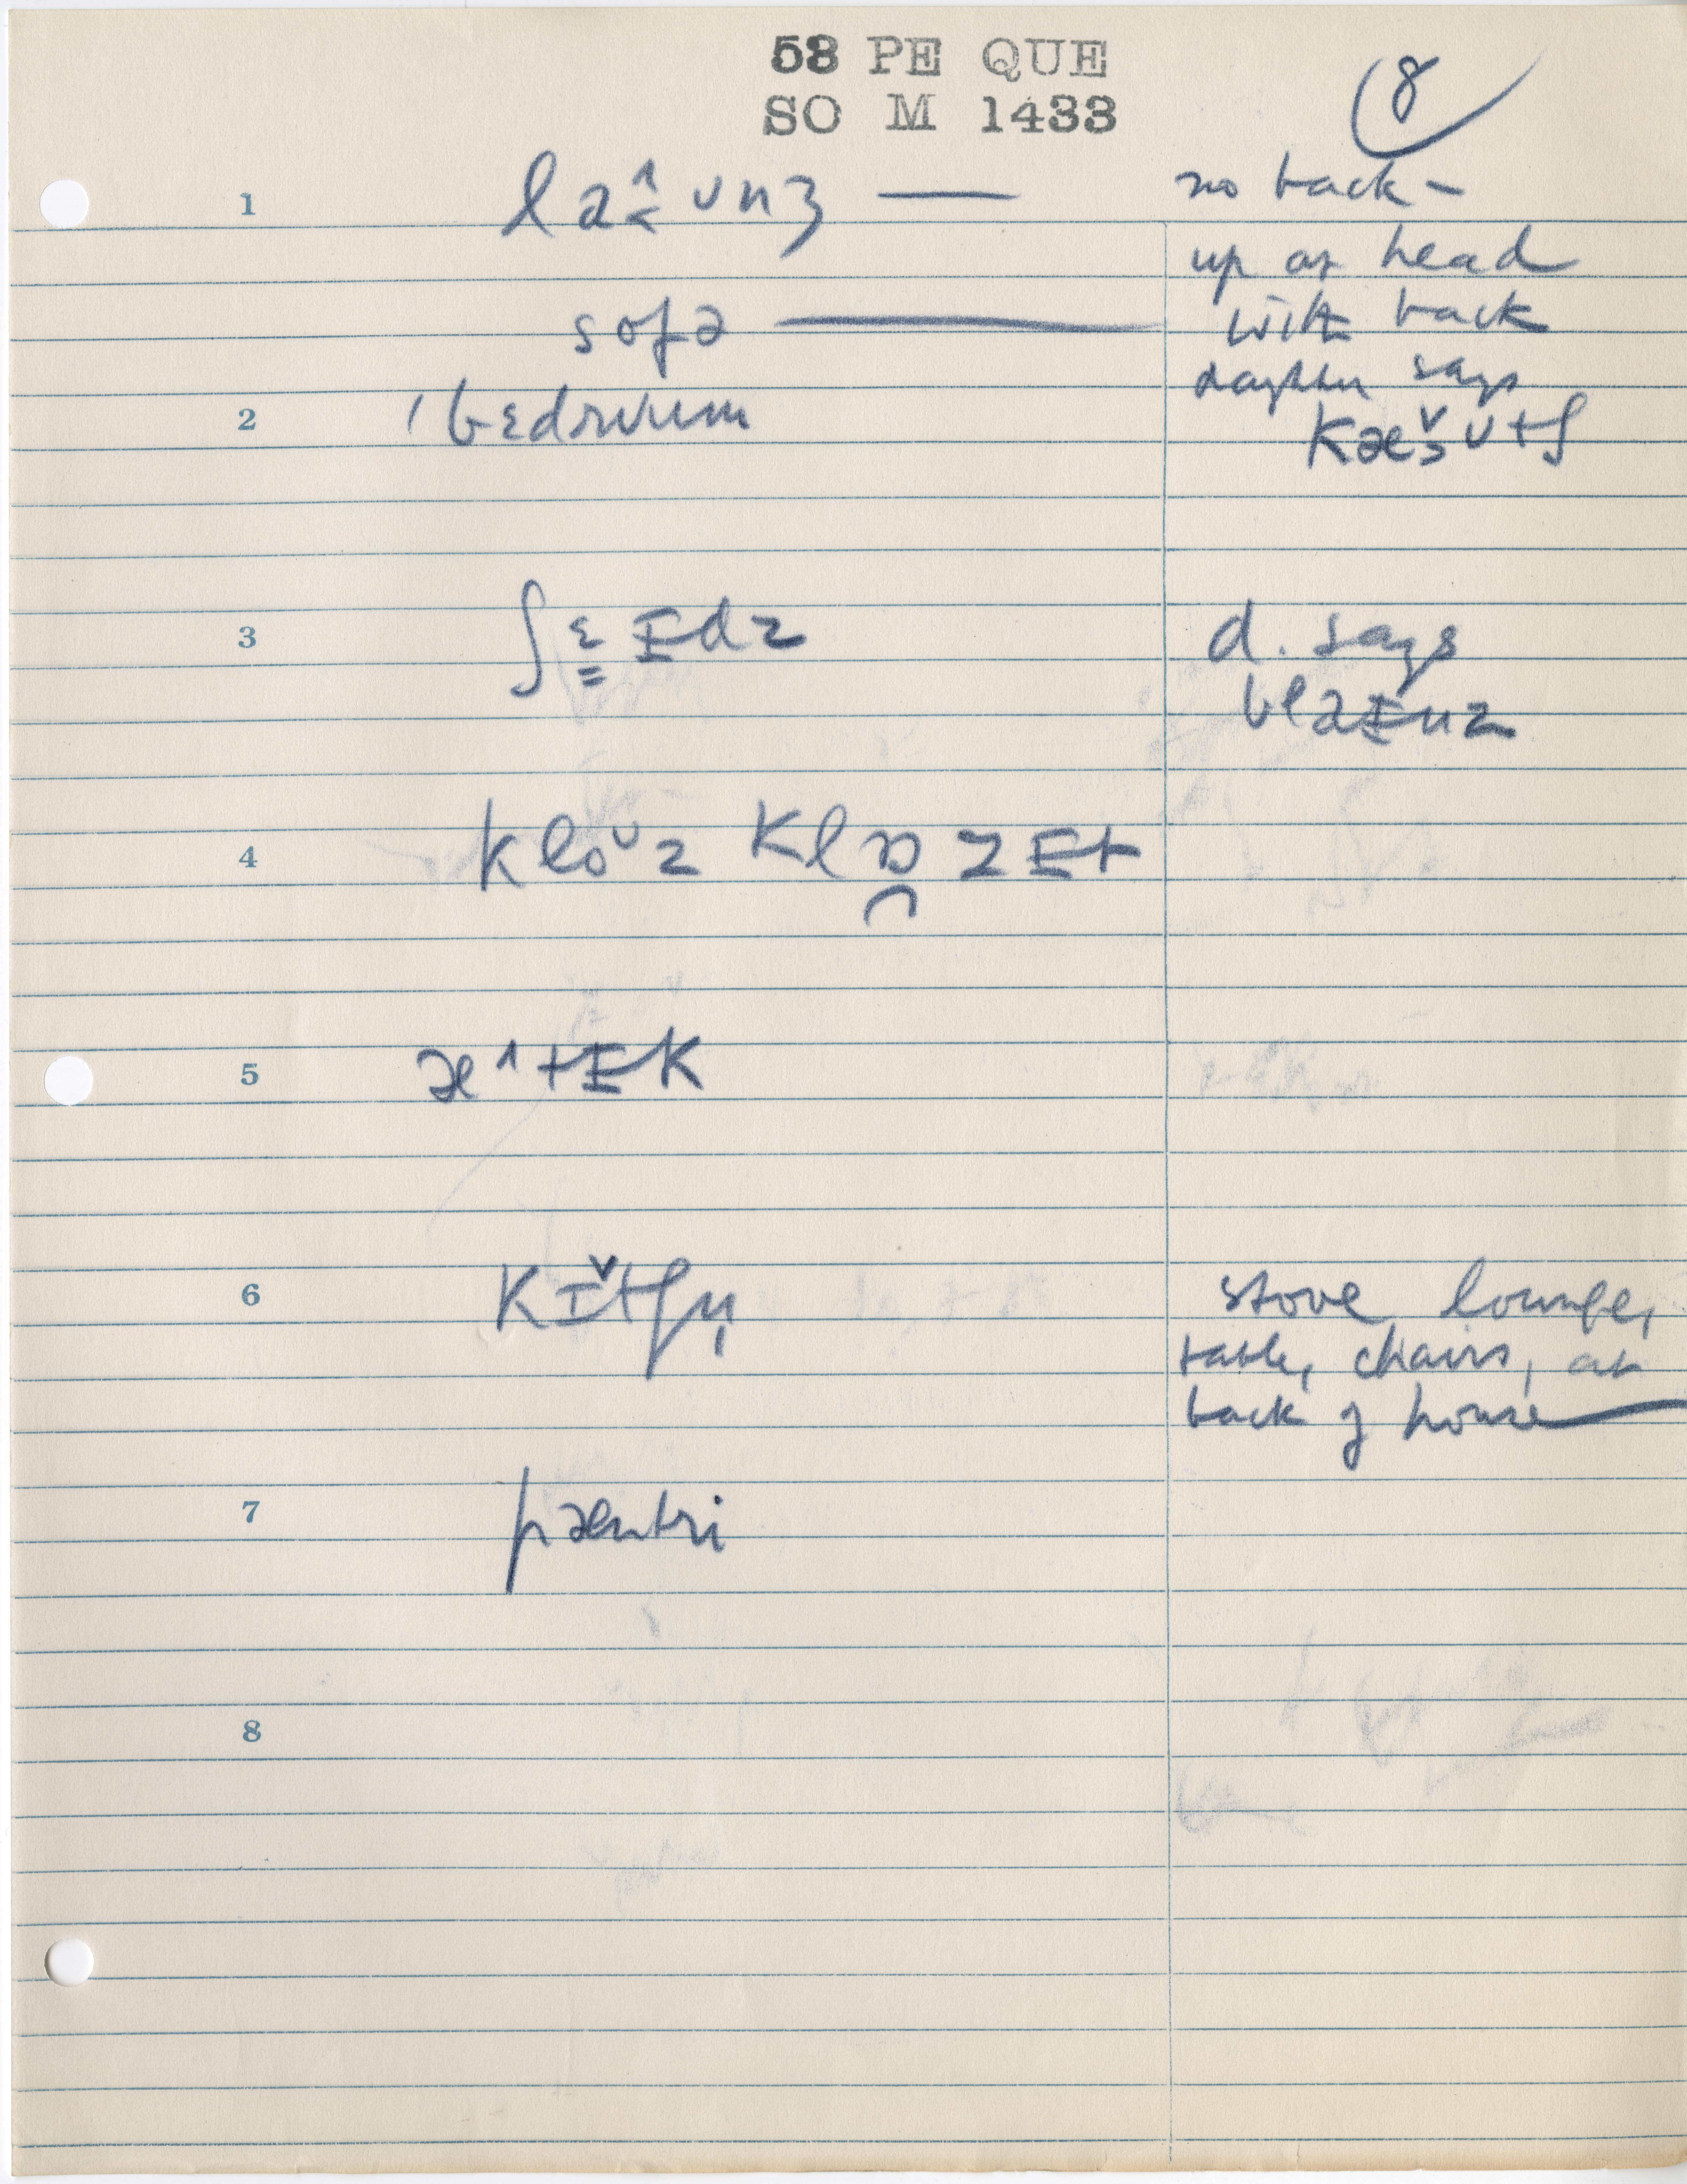 58 PE QUE
SO M 1433
8
1 laʌ̂ʊnʒ — no back -
up at head
sofə — with back
daughter says
2 ˈbɛdruum kæ̌ʊtʃ
3 ʃɛɪdz d. says
bləɪnz
4 kloᴜz klɒzɪt
5 æ^tɪk
6 kɪ̌tʃn̩ stove, lounge,
table, chairs, at
back of house
7 pæntri
8